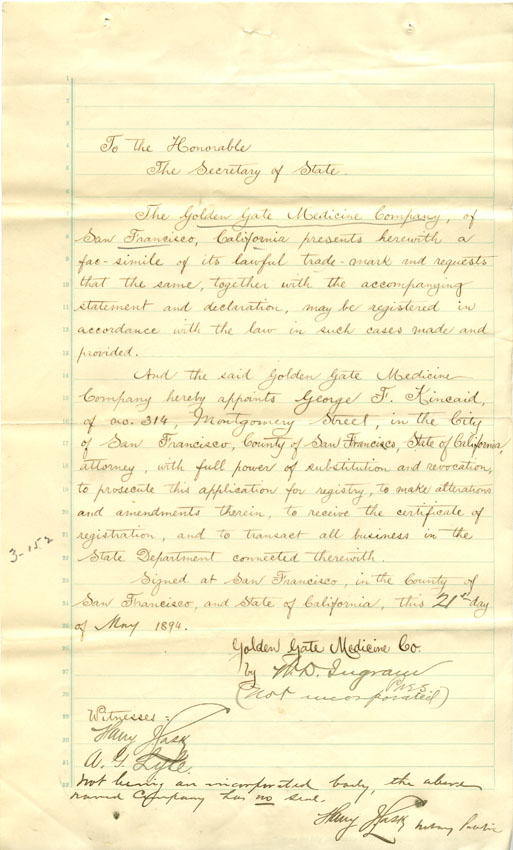 To the Honorable
The Secretary of State.
The Golden Gate Medicine Company, of
San Francisco, California presents herewith a
fac-simile of its lawful trade-mark and requests
that the same, together with the accompanying
statement and declaration, may be registered in
accordance with the law in such cases made and
provided.
And the said Golden Gate Medicine
Company hereby appoints George F. Kincaid,
of no. 314, Montgomery Street, in the City
of San Francisco, County of San Francisco, State of California,
attorney, with full power of substitution and revocation,
to prosecute this application for registry, to make alterations
and amendments therein, to receive the certificate of
registration, and to transact all business in the
State Department connected therewith.
3-152
Signed at San Francisco, in the County of
San Francisco, and State of California, this 21st day
of May 1894.
Golden Gate Medicine Co.
by W. D. Ingram
Pres.
(Not incorporated)
Witnesses:
Harry J. Lask
A. G. Lyle.
Not being an incorporated body, the above
named Company has no seal.
Harry J. Lask Notary Public